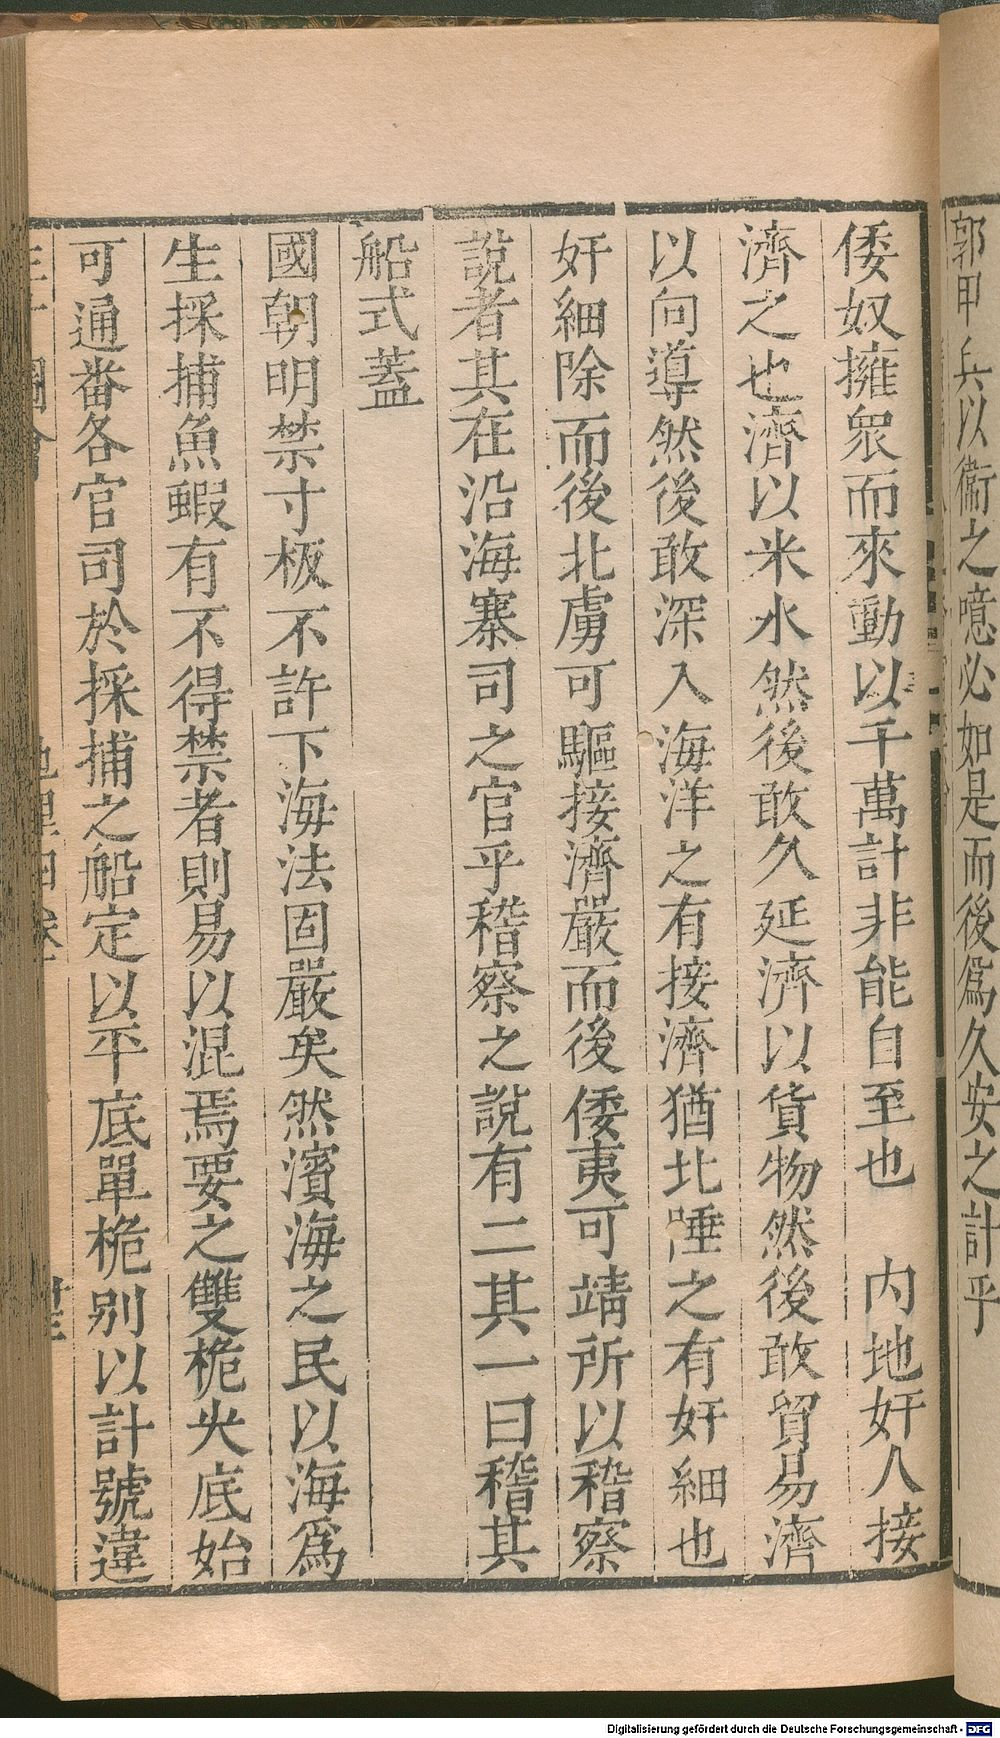 郭甲兵以衞之噫必如是而後爲久安之計乎
倭奴擁衆而來動以千萬計非能自至也　内地奸人接
濟之也濟以米水然後敢久延濟以貨物然後敢貿易濟
以向導然後敢深入海洋之有接濟猶北陲之有奸細也
奸細除而後北虜可驅接濟嚴而後倭夷可靖所以稽察
說者其在沿海寨司之官乎稽察之說有二其一曰稽其
船式蓋
國朝明禁寸板不許下海法固嚴矣然濱海之民以海爲
生採捕魚蝦有不得禁者則易以混焉要之雙桅尖底始
可通番各官司於採捕之船定以平底單桅别以計號違
地理四卷
Digitalisierung gefördert durch die Deutsche Forschungsgemeinschaft - DFG